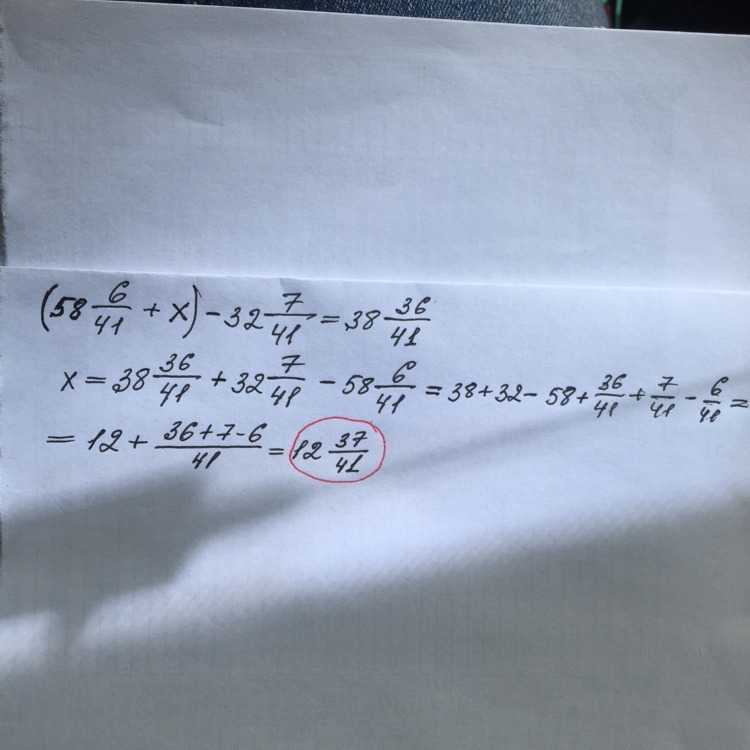 (58 6/41 + x) - 32 7/41 = 38 36/41
x = 38 36/41 + 32 7/41 - 58 6/41 = 38+32- 58+ 36/41 + 7/41 - 6/41 =
= 12 + (36+7-6)/41 = 12 37/41